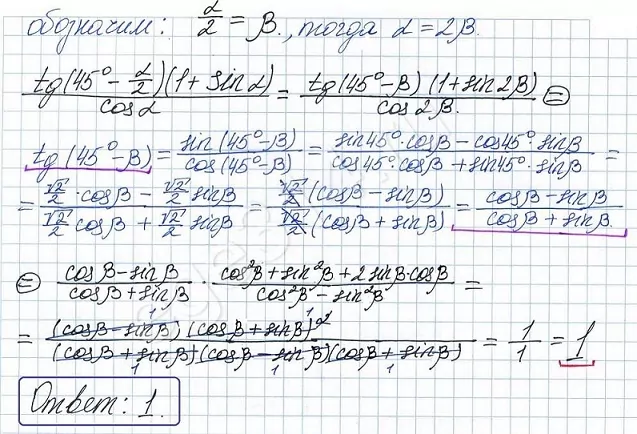 обозначим: α/2 = β., тогда α = 2β.
tg(45° - α/2)(1 + sin α)/cos α = tg(45° - β)(1 + sin 2β)/cos 2β. =
tg(45° - β) = sin(45° - β)/cos(45° - β) = (sin 45°·cos β - cos 45°·sin β)/(cos 45°·cos β + sin 45°·sin β) =
= (√2/2·cos β - √2/2 sin β)/(√2/2 cos β + √2/2 sin β) = √2/2 (cos β - sin β)/√2/2 (cos β + sin β) = (cos β - sin β)/(cos β + sin β).
= (cos β - sin β)/(cos β + sin β) · (cos²β + sin²β + 2 sin β·cos β)/(cos²β - sin²β) =
= (cos β - sin β)(cos β + sin β)²/(cos β + sin β)(cos β - sin β)(cos β + sin β) = 1/1 = 1
Ответ: 1.